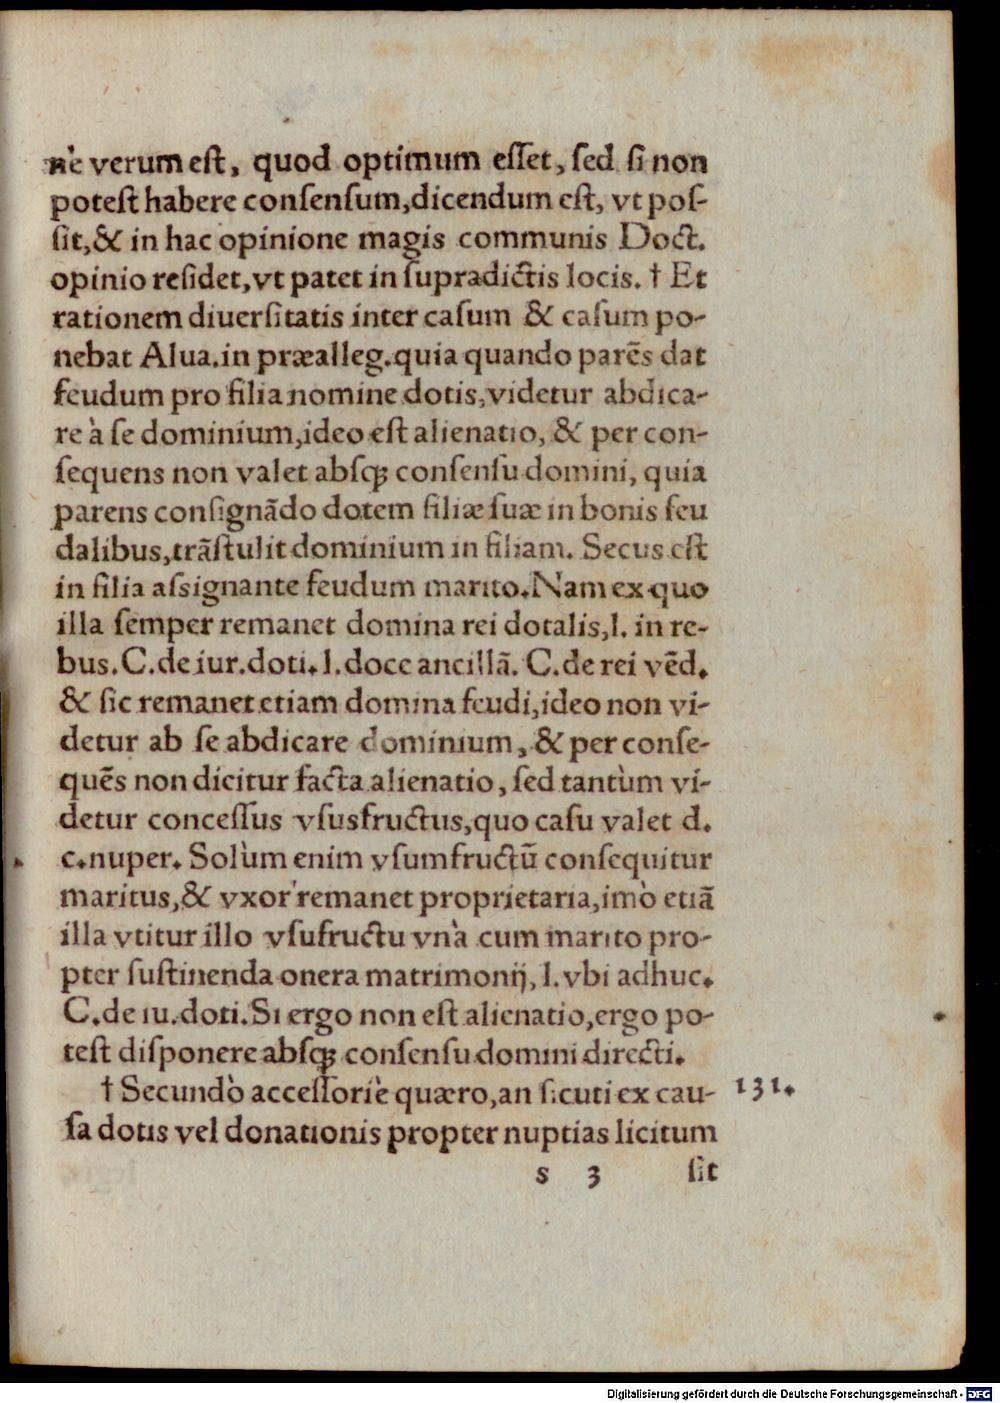 nè verum est, quod optimum esset, sed si non
potest habere consensum, dicendum est, vt pos-
sit, & in hac opinione magis communis Doct.
opinio residet, vt patet in supradictis locis. † Et
rationem diuersitatis inter casum & casum po-
nebat Alua. in præalleg. quia quando parēs dat
feudum pro filia nomine dotis, videtur abdica-
re à se dominium, ideo est alienatio, & per con-
sequens non valet absq; consensu domini, quia
parens consignādo dotem filiæ suæ in bonis feu
dalibus, trāstulit dominium in filiam. Secus est
in filia assignante feudum marito. Nam ex quo
illa semper remanet domina rei dotalis, l. in re-
bus. C. de iur. doti. l. doce ancillā. C. de rei vēd.
& sic remanet etiam domina feudi, ideo non vi-
detur ab se abdicare dominium, & per conse-
quēs non dicitur facta alienatio, sed tantùm vi-
detur concessus vsusfructus, quo casu valet d.
c. nuper. Solùm enim vsumfructū consequitur
maritus, & vxor remanet proprietaria, imò etiā
illa vtitur illo vsufructu vnà cum marito pro-
pter sustinenda onera matrimonij, l. vbi adhuc.
C. de iu. doti. Si ergo non est alienatio, ergo po-
test disponere absq; consensu domini directi.
† Secundò accessoriè quæro, an sicuti ex cau- 131.
sa dotis vel donationis propter nuptias licitum
s 3 sit
Digitalisierung gefördert durch die Deutsche Forschungsgemeinschaft - DFG